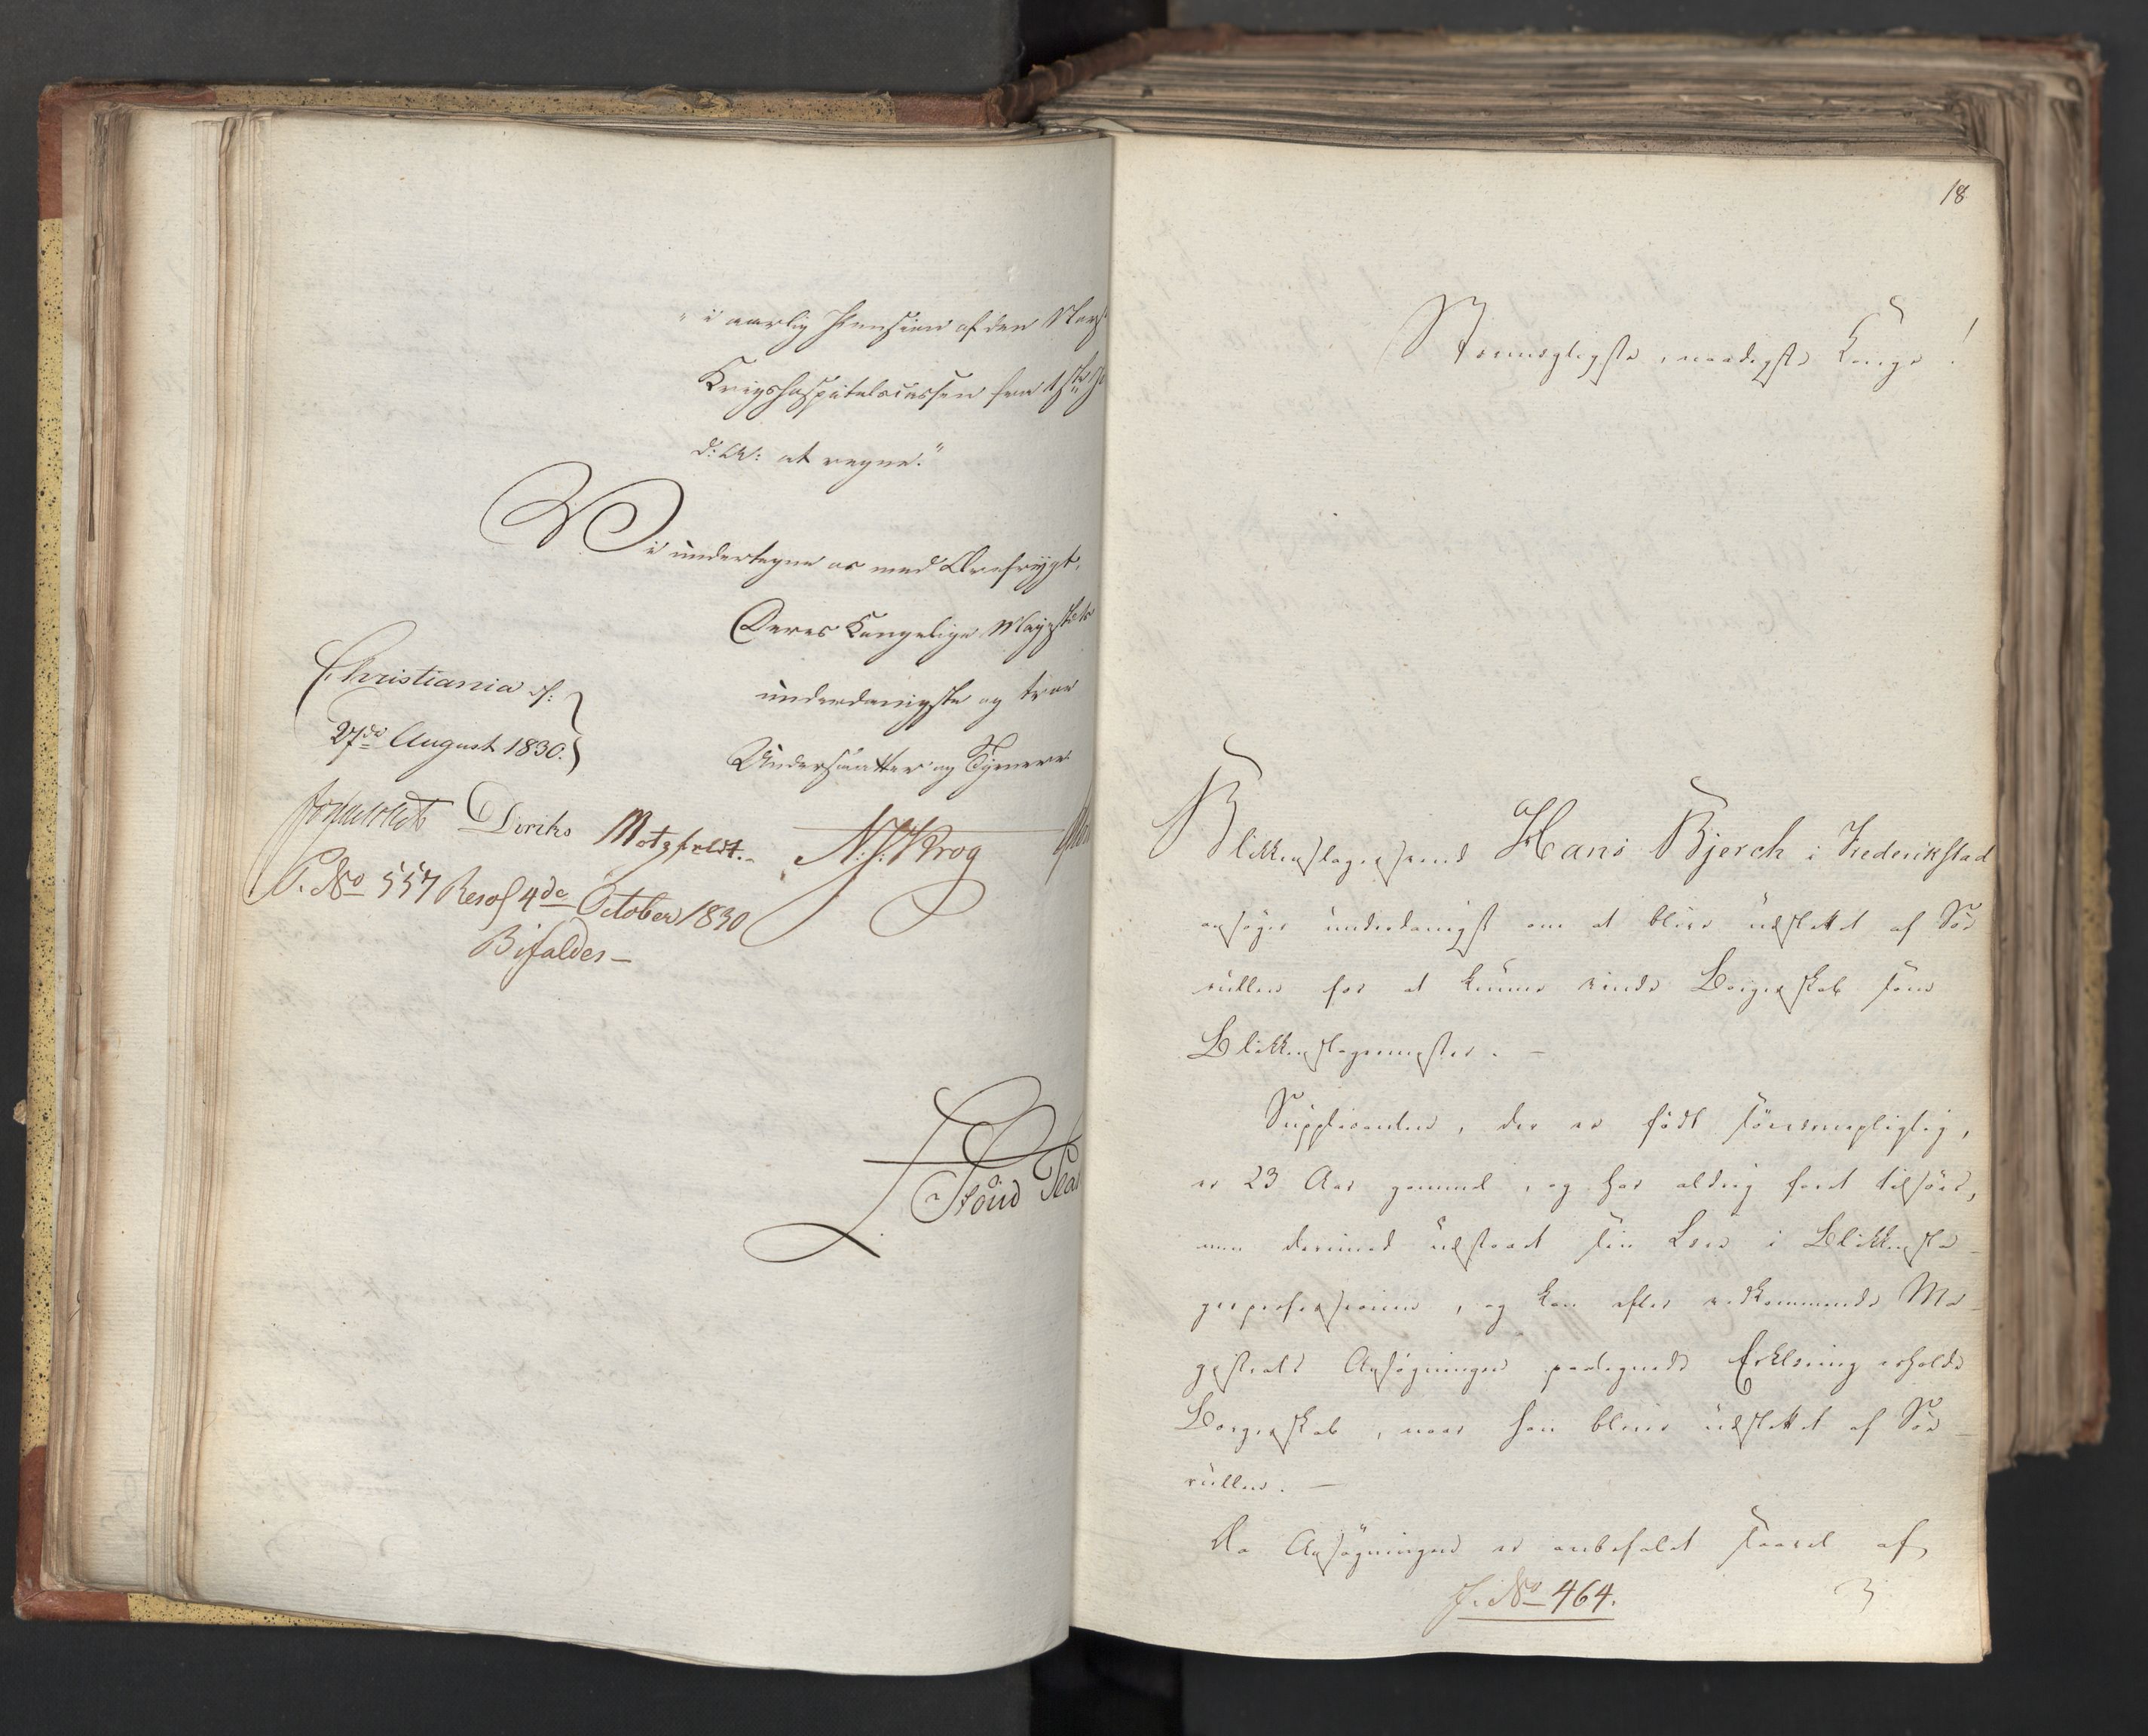 "i aarlig Pension af den Norske
Krigshospitalscassen fra 1ste
d: A: at regne."
Vi undertegne os med Ærefrygt,
Deres Kongelige Majestæts
underdanigste og troe
Undersaatter og Tjenere
Christiania d:
27de August 1830.
Diriks Motzfeldt. N. J. Krog
P. No 557 Resol 4de October 1830
Bifaldes —
18
Stormægtigste, naadigste Konge!
Blikkenslagersvend Hans Bjerch i Frederikstad
ansøger underdanigst om at blive udslettet af Søe
rullen for at kunne vinde Borgerskab som
Blikkenslagermester. —
Supplicanten, der er født søeværnepligtig,
er 23 Aar gammel, og har aldrig faret tilsøes,
men derimod udstaaet sin Lære i Blikkensla-
gerprofessionen, og kan efter vedkommende Ma-
gistrats Ansøgningen paategnede Erklæring erholde
Borgerskab, naar han bliver udslettet af Søe-
rullen. —
Da Ansøgningen er anbefalet saavel af
J. No 464.
3